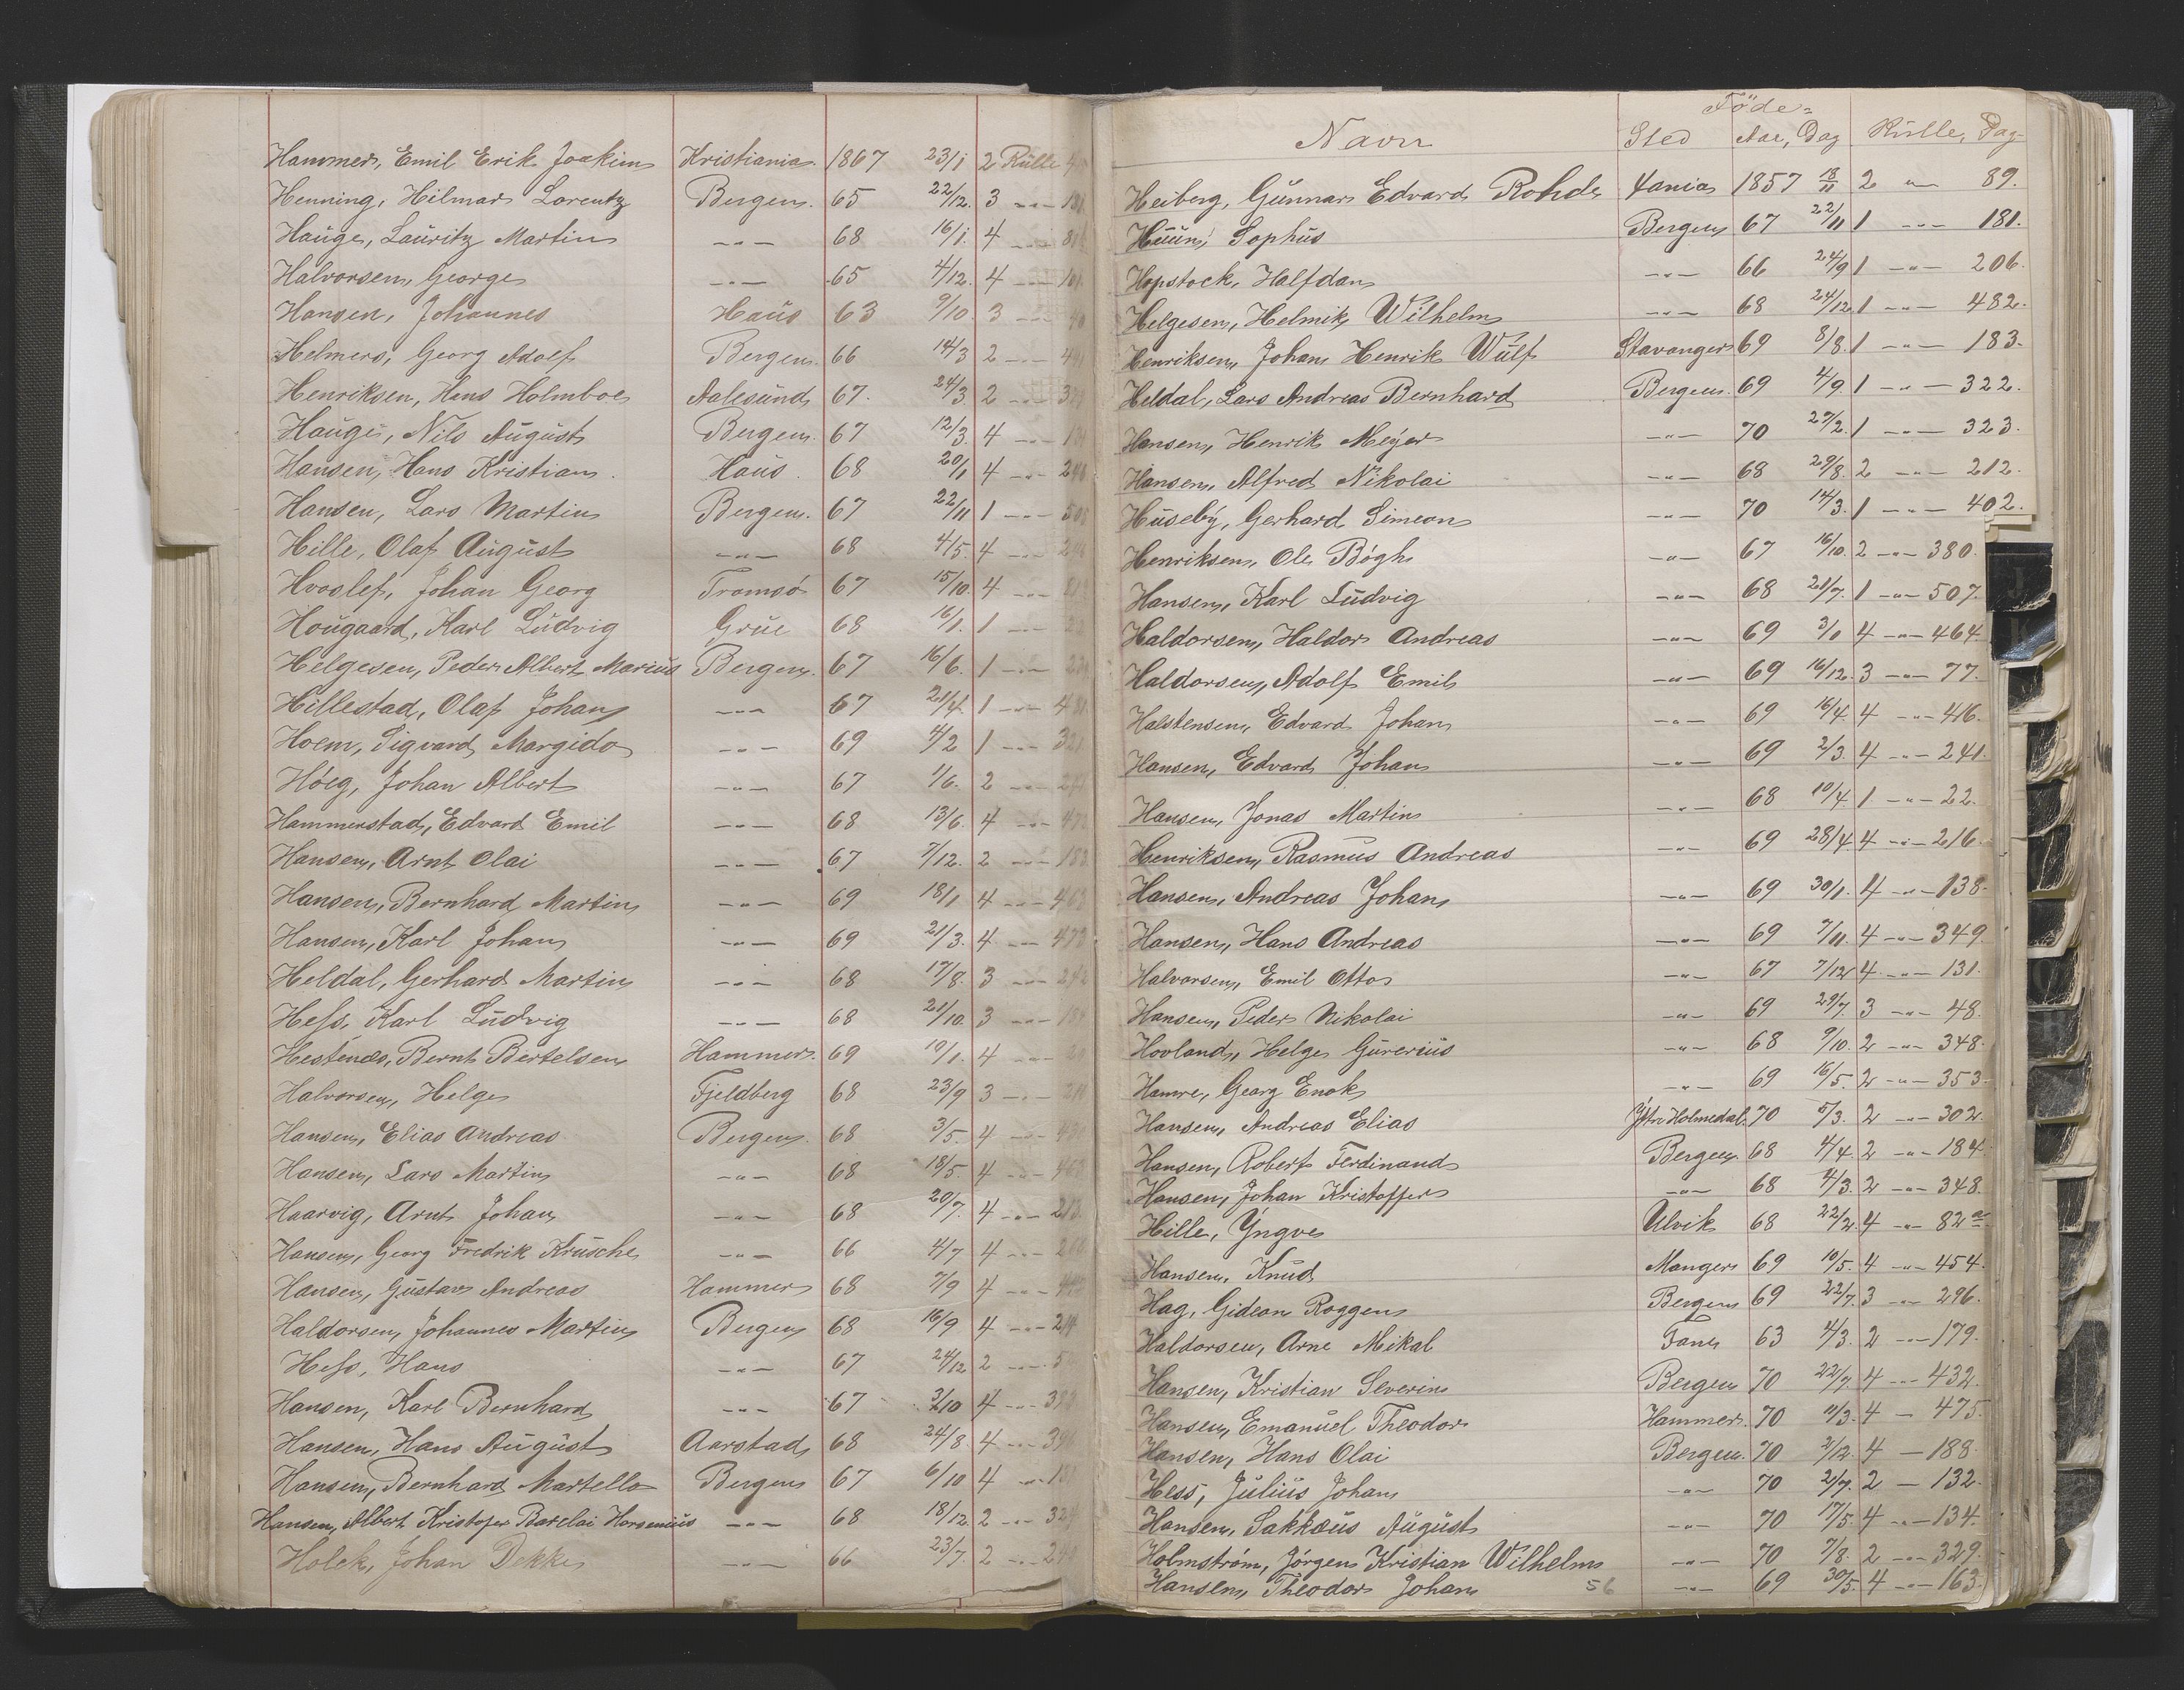 Hammer, Emil Erik Joakim Kristiania 1867 23/1 2 Rulle
Henning, Hilmar Lorentz Bergen. 65 22/12. 3 -"-
Hauge, Lauritz Martin -"- 68 16/1. 4 -"-
Halvorsen, George -"- 65 4/12. 4 -"-
Hansen, Johannes Haus 63 9/10 3 -"-
Helmers, Georg Adolf Bergen. 66 14/3 2 -"-
Henriksen, Hans Holmboe Aalesund 67. 24/3 2 -"-
Hauge, Nils August Bergen. 67 12/3. 4 -"-
Hansen, Hans Kristian. Haus. 68 20/1 4 -"-
Hansen, Lars Martin Bergen. 67 22/11 1 -"-
Hille, Olaf August -"- 68 4/5 4 -"-
Hvoslef, Johan Georg Tromsø 67 15/10. 4 -"-
Hougaard, Karl Ludvig Grue 68 16/1. 1 -"-
Helgesen, Peder Albert Marius Bergen. 67 16/6. 1 -"-
Hillestad, Olaf Johan -"- 67 21/4. 1 -"-
Hoem, Sigvard Margido -"- 69 4/2 1 -"-
Höeg, Johan Albert -"- 67 1/6. 2 -"-
Hammerstad, Edvard Emil -"- 68 13/6. 4 -"-
Hansen, Arnt Olai -"- 67 7/12. 2 -"-
Hansen, Bernhard Martin -"- 69 18/1 4 -"-
Hansen, Karl Johan -"- 69 21/3. 4 -"-
Heldal, Gerhard Martin -"- 68 17/8. 3 -"-
Hess, Karl Ludvig -"- 68 21/10. 3 -"-
Hestenæs, Bernt Bertelsen Hammer. 69 10/1. 4 -"-
Halvorsen, Helge Fjeldberg 68 23/9 3 -"-
Hansen, Elias Andreas Bergen. 68 3/5. 4 -"-
Hansen, Lars Martin -"- 68 18/5. 4 -"-
Haarvig, Arnt Johan -"- 68 20/7. 4 -"-
Hansen, Georg Fredrik Krusche -"- 66 4/7 4 -"-
Hansen, Gustav Andreas Hammer 68 7/9 4 -"-
Haldorsen, Johannes Martin Bergen 68 16/9 4 -"-
Hess, Hans -"- 67 24/12 2 -"-
Hansen, Karl Bernhard -"- 67 3/10 4 -"-
Hansen, Hans August Aarstad 68 24/8. 4 -"-
Hansen, Bernhard Martello Bergen 67 6/10 4 -"-
Hansen, Albert Kristofer Barclai Horsenius -"- 68 18/12. 2 -"-
Holck, Johan Dekke -"- 66 23/7. 2 -"-
Navn Föde=
Sted Aar, Dag Rulle, Pag.
Heiberg, Gunnar Edvard Rohde Xania 1857 18/11 2 -"- 89.
Huun, Sophus Bergen 67 22/11 1 -"- 181.
Hopstock, Halfdan -"- 66 24/9 1 -"- 206.
Helgesen, Helmik Wilhelm -"- 68 24/12 1 -"- 482.
Henriksen, Johan Henrik Wulf Stavanger 69 8/8. 1 -"- 183.
Heldal, Lars Andreas Bernhard Bergen. 69 4/9. 1 -"- 322.
Hansen, Henrik Meyer -"- 70 27/2. 1 -"- 323.
Hansen, Alfred Nikolai -"- 68 29/8. 2 -"- 212.
Huseby, Gerhard Simeon -"- 70 14/3. 1 -"- 402.
Henriksen, Ole Bøgh -"- 67 16/10. 2 -"- 380.
Hansen, Karl Ludvig -"- 68 21/7. 1 -"- 507.
Haldorsen, Haldor Andreas -"- 69 3/1 4 -"- 464.
Haldorsen, Adolf Emil -"- 69 16/12. 3 -"- 77.
Halstensen, Edvard Johan -"- 69 16/4. 4 -"- 416.
Hansen, Edvard Johan -"- 69 2/3. 4 -"- 241.
Hansen, Jonas Martin -"- 68 10/4. 1 -"- 22.
Henriksen, Rasmus Andreas -"- 69 28/4 4 -"- 216.
Hansen, Andreas Johan -"- 69 30/1. 4 -"- 138.
Hansen, Hans Andreas -"- 69 7/11. 4 -"- 349.
Halvorsen, Emil Otto -"- 67 7/12 4 -"- 131.
Hansen, Peder Nikolai -"- 69 29/7. 3 -"- 48.
Hovland, Helge -"- 68 9/10. 2 -"- 348.
Hamre, Georg Enok -"- 69 16/5. 2 -"- 353.
Hansen, Andreas Elias Ytre Holmedal. 70 5/3. 2 -"- 302.
Hansen, Robert Ferdinand Bergen. 68 4/4. 2 -"- 184.
Hansen, Johan Kristoffer -"- 68 4/3. 2 -"- 348.
Hille, Yngve Ulvik 68 22/2. 4 -"- 82 a
Hansen, Knud Manger 69 10/5. 4 -"- 454.
Hag, Gidean Roggen Bergen 69 22/7. 3 -"- 296.
Haldorsen, Arne Mikal Fane 63 4/3. 2 -"- 179.
Hansen, Kristian Severin Bergen 70 22/7. 4 -"- 432.
Hansen, Emanuel Theodor Hammer. 70 11/3. 4 - 475.
Hansen, Hans Olai Bergen. 70 /12. 4 - 188.
Hess, Julius Johan -"- 70 2/7. 2 - 132.
Hansen, Sakkæus August -"- 70 17/5. 4 -"- 134.
Holmström, Jörgen Kristian Wilhelm -"- 70 7/8. 2 -"- 329.
Hansen, Theodor Johan 56 -"- 69 30/5. 4 -"- 163.
J
K